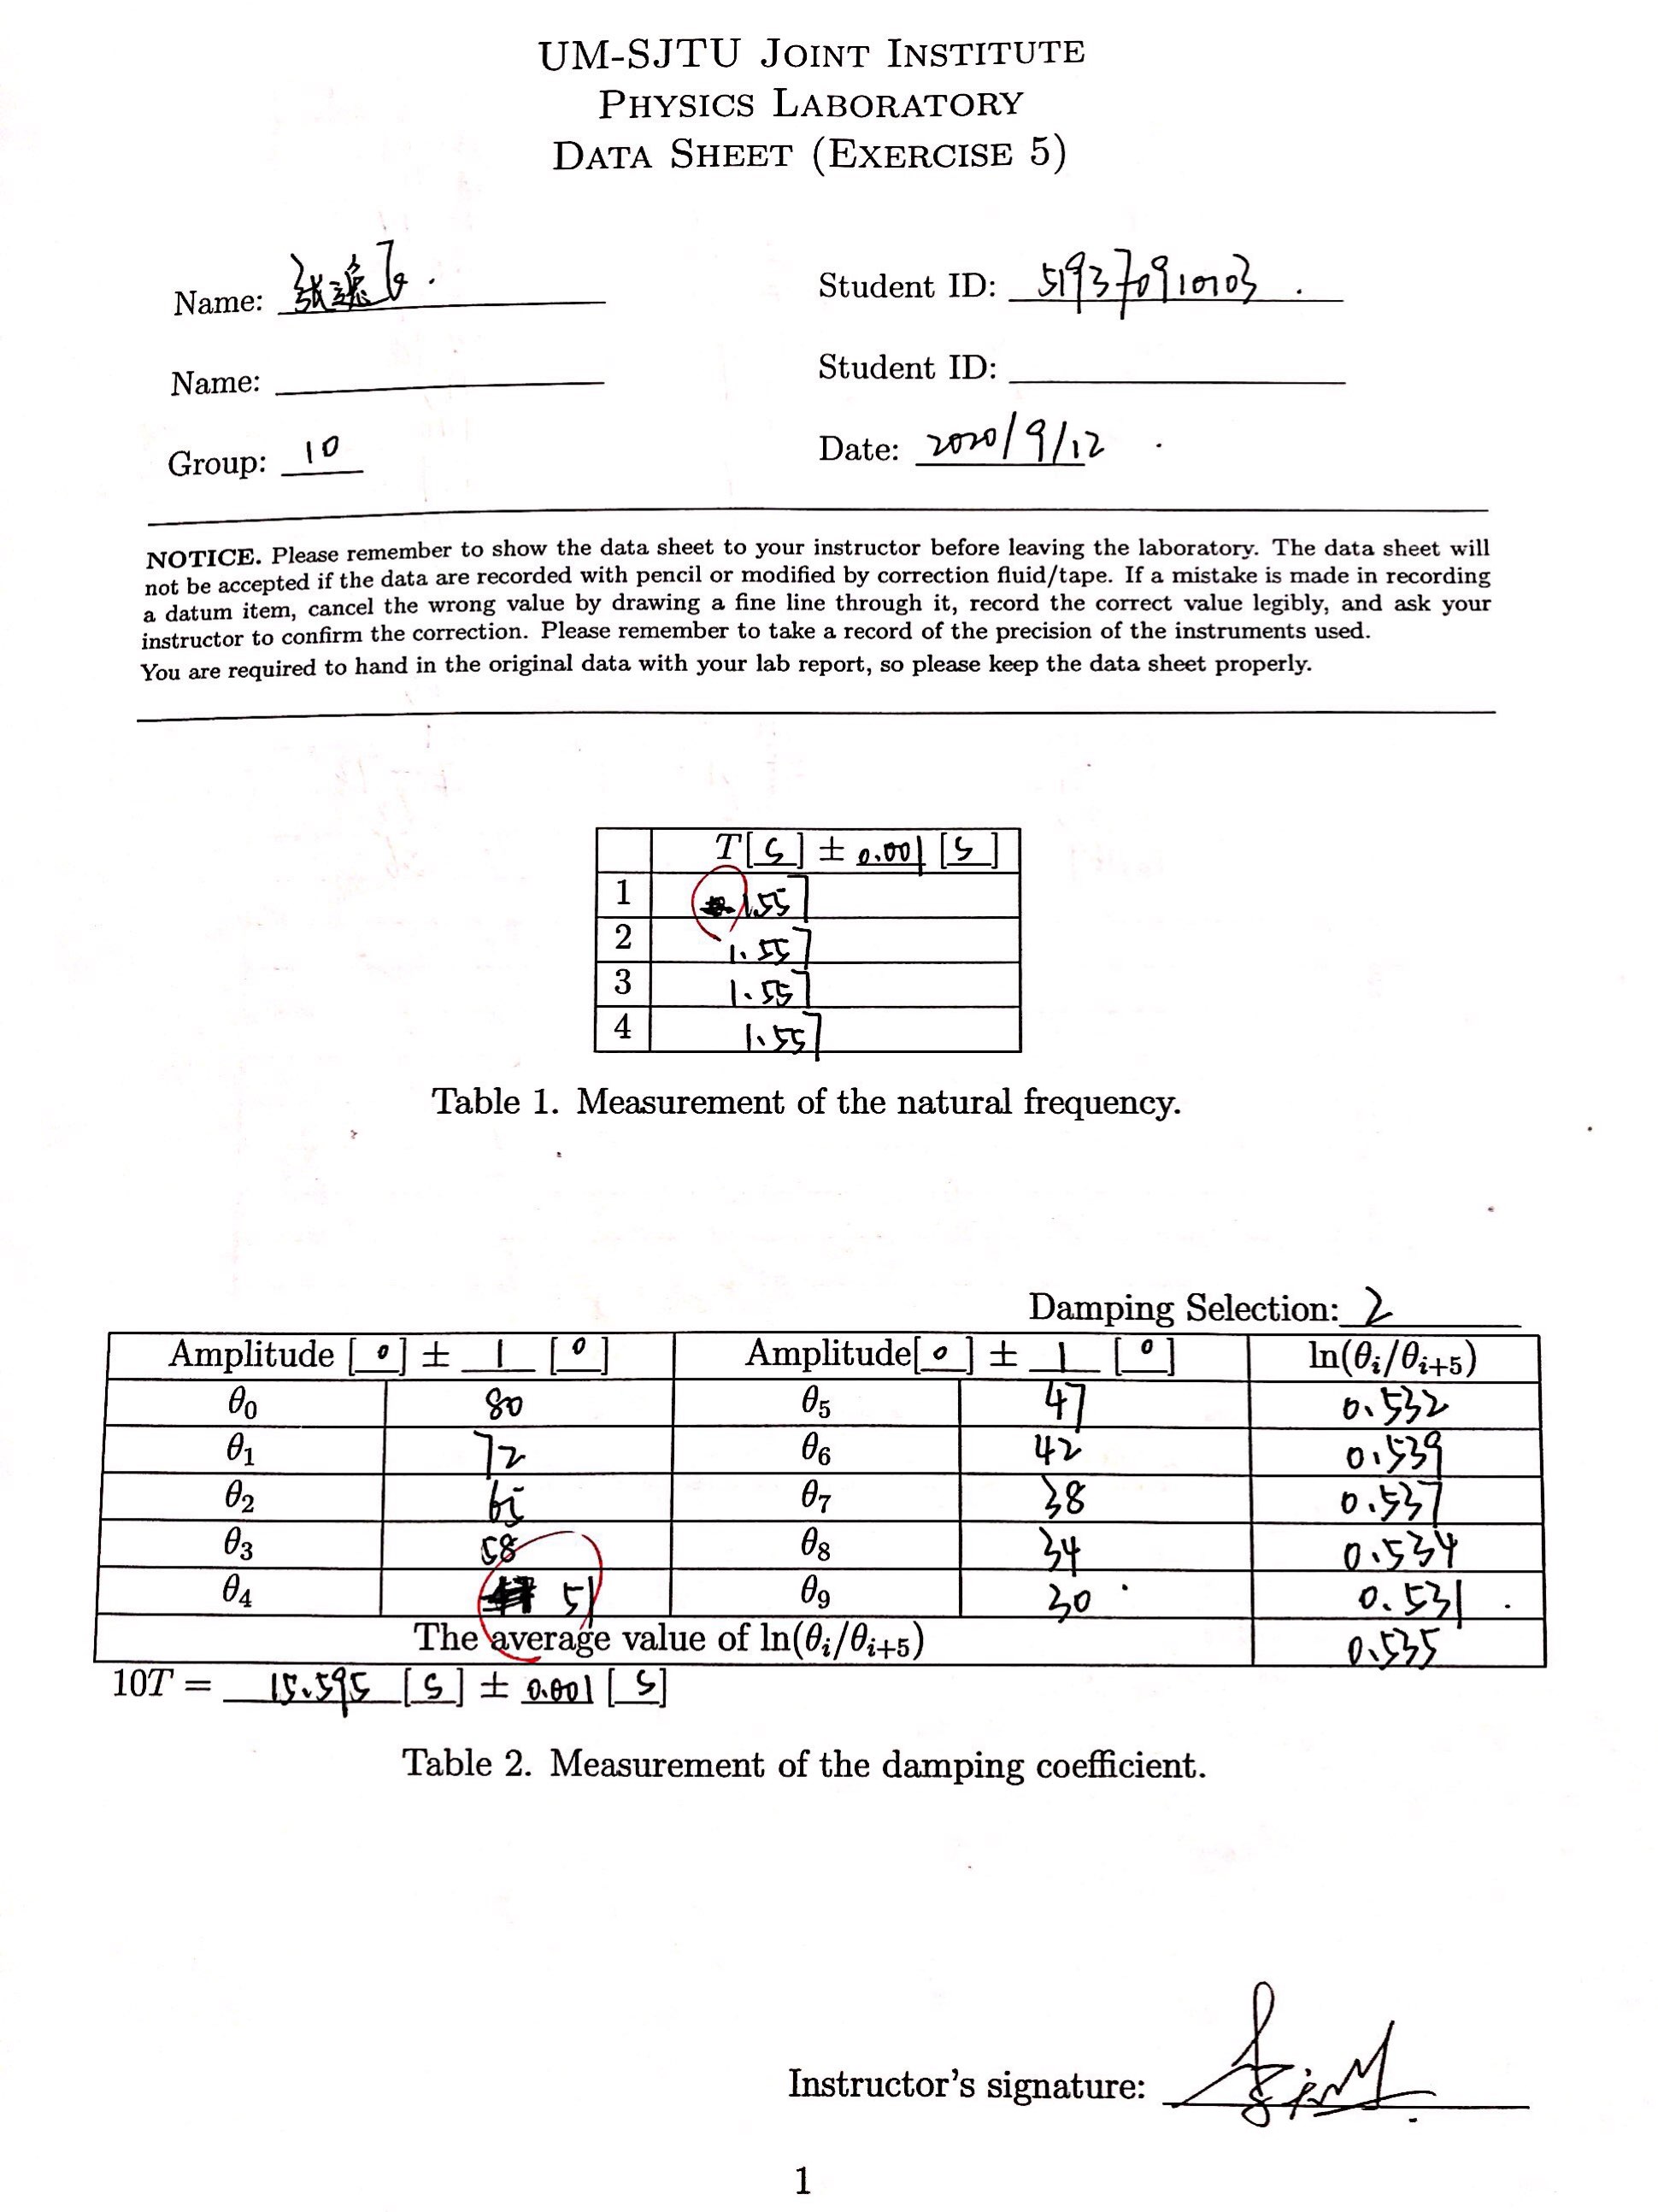 UM-SJTU JOINT INSTITUTE
PHYSICS LABORATORY
DATA SHEET (EXERCISE 5)
Name: 张 Student ID: 519370910103 .
Name: Student ID:
Group: 10 Date: 2020/9/12 .
NOTICE. Please remember to show the data sheet to your instructor before leaving the laboratory. The data sheet will
not be accepted if the data are recorded with pencil or modified by correction fluid/tape. If a mistake is made in recording
a datum item, cancel the wrong value by drawing a fine line through it, record the correct value legibly, and ask your
instructor to confirm the correction. Please remember to take a record of the precision of the instruments used.
You are required to hand in the original data with your lab report, so please keep the data sheet properly.
T[s] ± 0.001 [s]
1 1.557
2 1.557
3 1.557
4 1.557
Table 1. Measurement of the natural frequency.
Damping Selection: 2
Amplitude [°] ± 1 [°] Amplitude[°] ± 1 [°] ln(θi/θi+5)
θ0 80 θ5 47 0.532
θ1 72 θ6 42 0.539
θ2 65 θ7 38 0.537
θ3 58 θ8 34 0.534
θ4 51 θ9 30 0.531
The average value of ln(θi/θi+5) 0.535
10T = 15.595 [s] ± 0.001 [s]
Table 2. Measurement of the damping coefficient.
Instructor's signature:
1